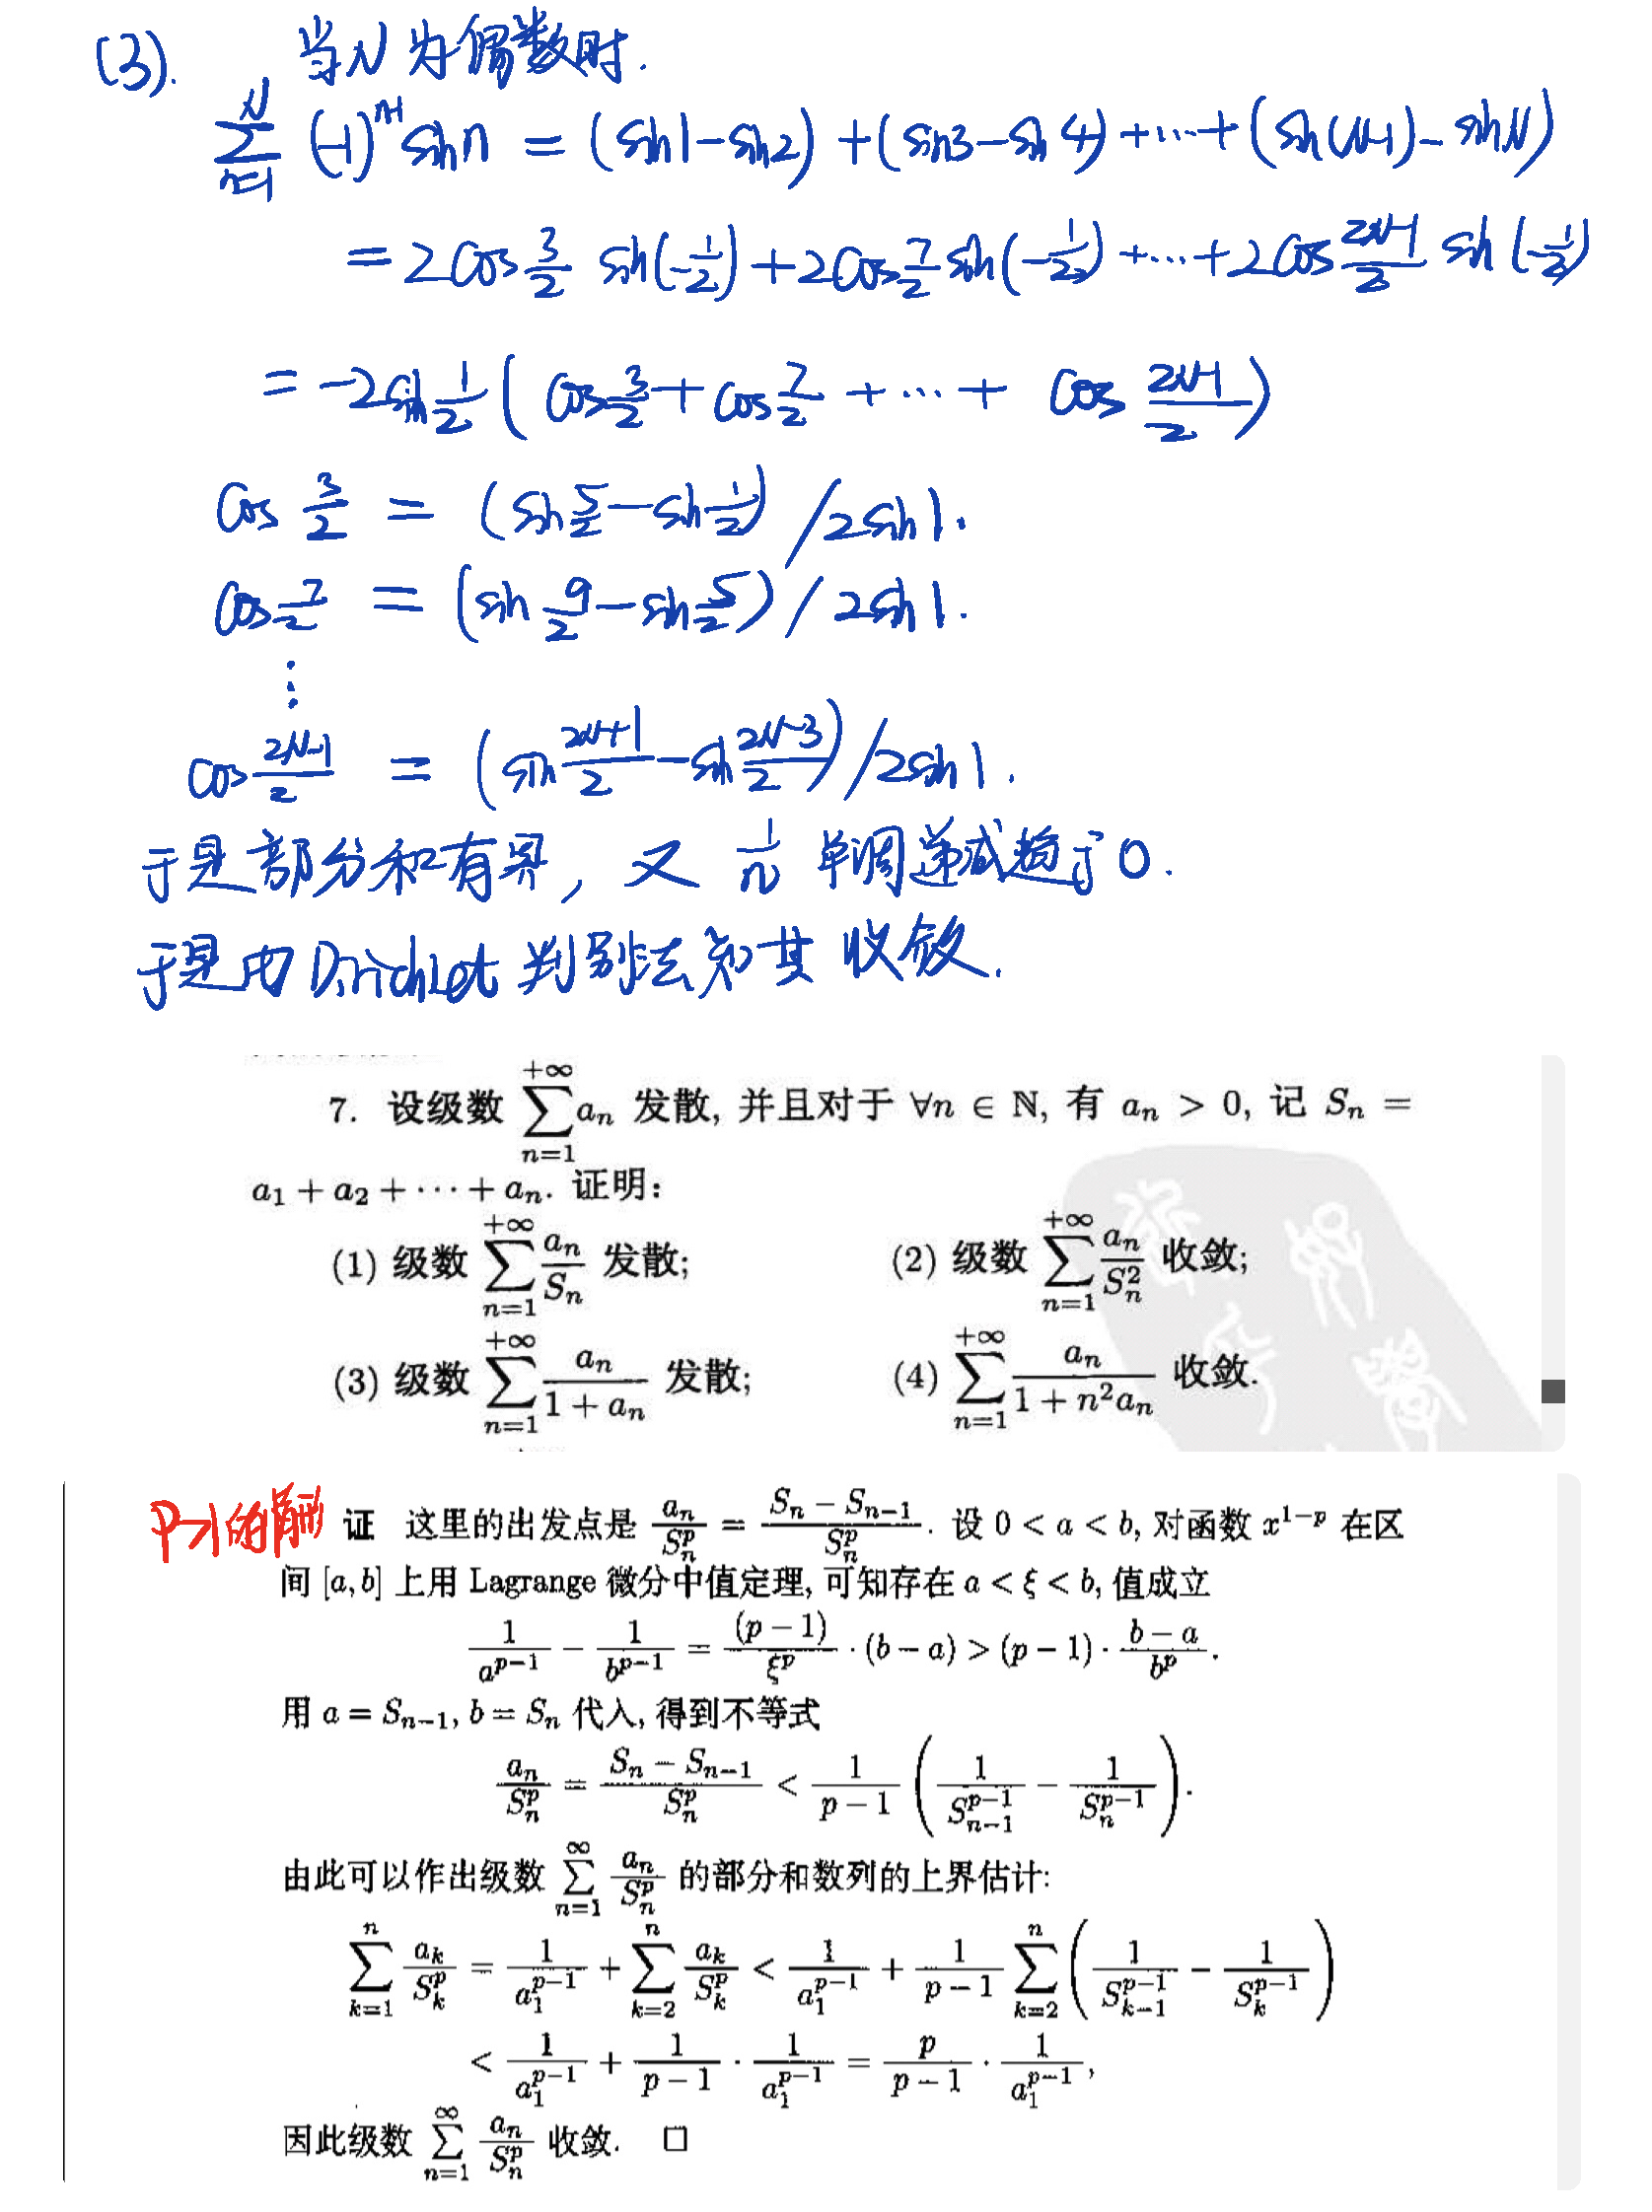 (3). 当N为偶数时.
∑_{n=1}^{N} (-1)^{n+1} sin n = (sin1-sin2)+(sin3-sin4)+…+(sin(N-1)-sinN)
= 2cos 3/2 sin(-1/2)+2cos 7/2 sin(-1/2)+…+2cos (2N-1)/2 sin(-1/2)
= -2sin 1/2 (cos 3/2 + cos 7/2 + … + cos (2N-1)/2)
cos 3/2 = (sin 5/2 - sin 1/2)/2sin1.
cos 7/2 = (sin 9/2 - sin 5/2)/2sin1.
⋮
cos (2N-1)/2 = (sin (2N+1)/2 - sin (2N-3)/2)/2sin1.
于是部分和有界, 又 1/n 单调递减趋于0.
于是由Dirichlet判别法知其收敛.
7. 设级数 ∑_{n=1}^{+∞} a_n 发散, 并且对于 ∀n ∈ ℕ, 有 a_n > 0, 记 S_n =
a_1 + a_2 + ⋯ + a_n. 证明:
(1) 级数 ∑_{n=1}^{+∞} a_n/S_n 发散; (2) 级数 ∑_{n=1}^{+∞} a_n/S_n^2 收敛;
(3) 级数 ∑_{n=1}^{+∞} a_n/(1 + a_n) 发散; (4) ∑_{n=1}^{+∞} a_n/(1 + n^2 a_n) 收敛.
P>1的 证 这里的出发点是 a_n/S_n^p = (S_n - S_{n-1})/S_n^p. 设 0 < a < b, 对函数 x^{1-p} 在区
间 [a, b] 上用 Lagrange 微分中值定理, 可知存在 a < ξ < b, 值成立
1/a^{p-1} - 1/b^{p-1} = (p - 1)/ξ^p · (b - a) > (p - 1) · (b - a)/b^p.
用 a = S_{n-1}, b = S_n 代入, 得到不等式
a_n/S_n^p = (S_n - S_{n-1})/S_n^p < 1/(p - 1) (1/S_{n-1}^{p-1} - 1/S_n^{p-1}).
由此可以作出级数 ∑_{n=1}^{∞} a_n/S_n^p 的部分和数列的上界估计:
∑_{k=1}^{n} a_k/S_k^p = 1/a_1^{p-1} + ∑_{k=2}^{n} a_k/S_k^p < 1/a_1^{p-1} + 1/(p - 1) ∑_{k=2}^{n} (1/S_{k-1}^{p-1} - 1/S_k^{p-1})
< 1/a_1^{p-1} + 1/(p - 1) · 1/a_1^{p-1} = p/(p - 1) · 1/a_1^{p-1},
因此级数 ∑_{n=1}^{∞} a_n/S_n^p 收敛. □